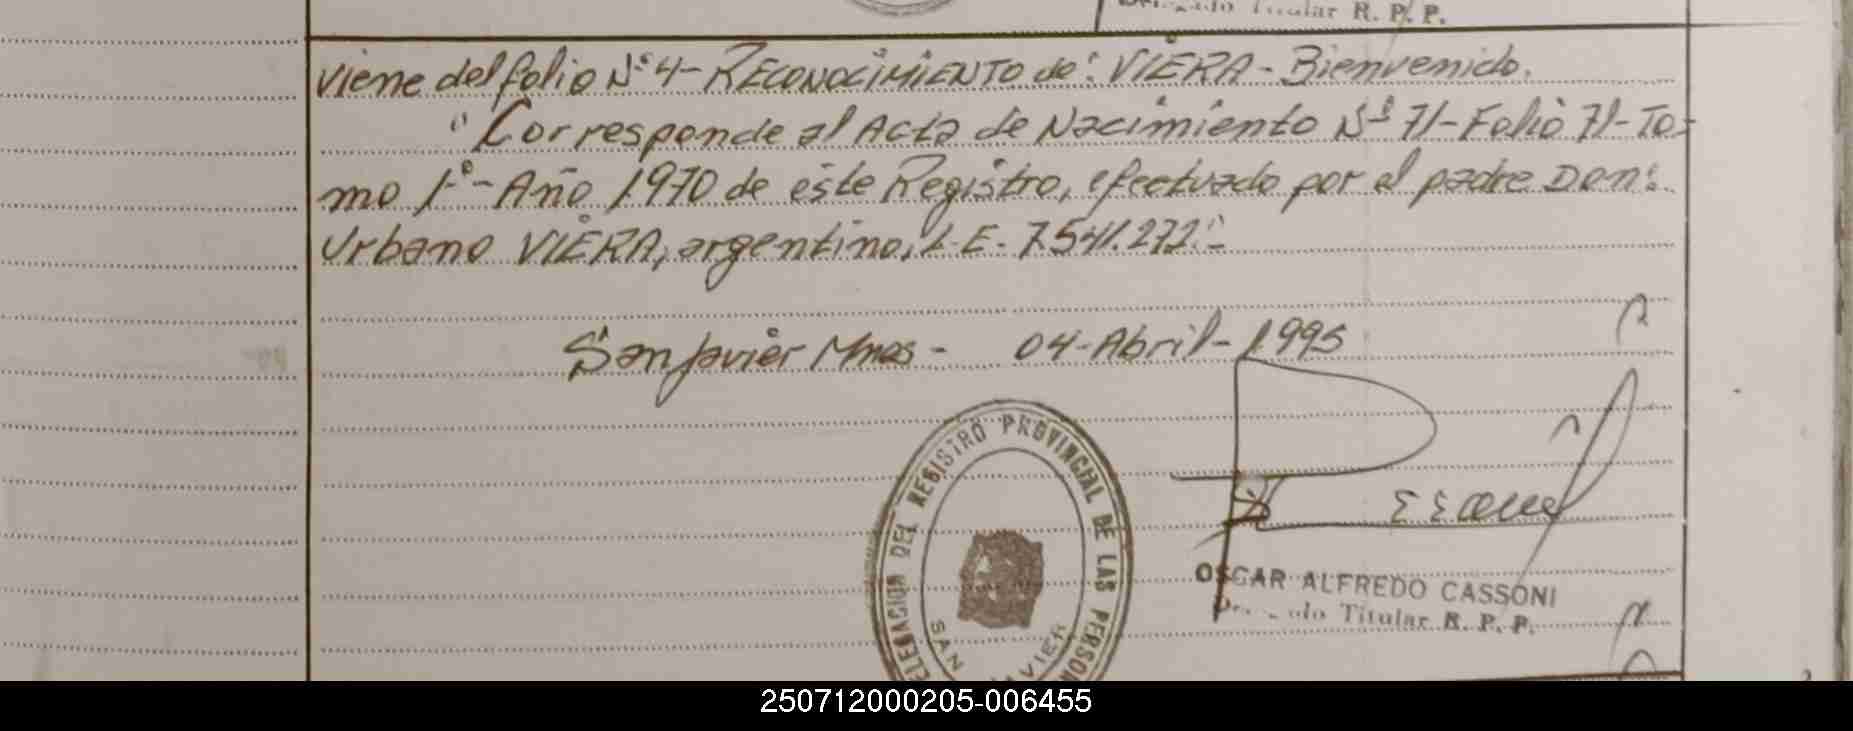 Titular R. P. P.
viene del folio Nº 4- RECONOCIMIENTO de: VIERA - Bienvenido.
" Corresponde al Acta de Nacimiento Nº 71- Folio 71- To-
mo 1º- Año 1970 de este Registro, efectuado por el padre Don:
Urbano VIERA, argentino, L.E. 7.541.272."-
San Javier Mnes - 04-Abril-1995
DEL REGISTRO PROVINCIAL DE LAS
SAN JAVIER
OSCAR ALFREDO CASSONI
Titular R. P. P.
250712000205-006455